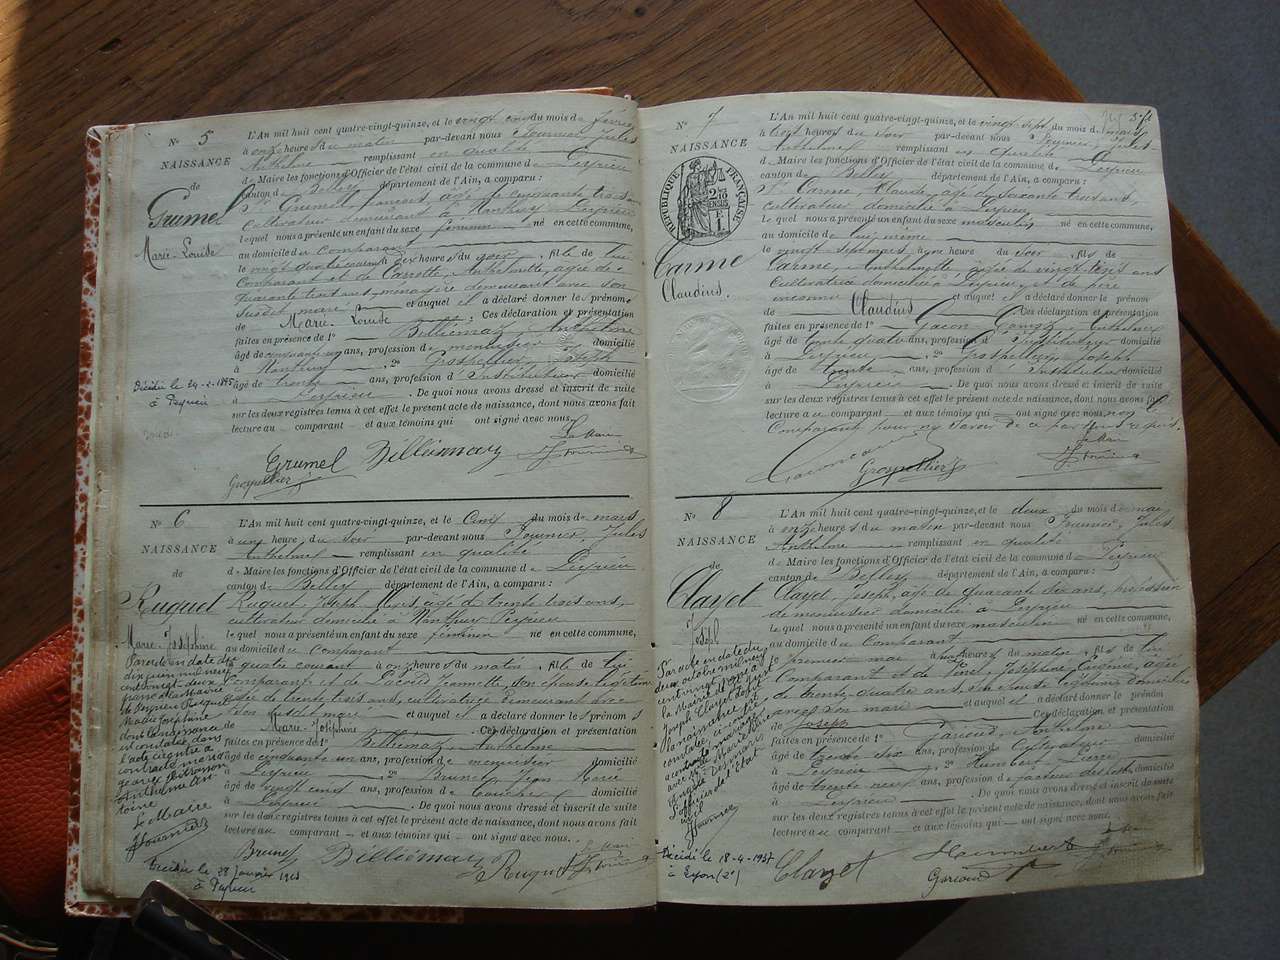 N° 5
NAISSANCE
de
Grumel
Marie-Louise
Décédée le 24-2-1895
à Peyrieu
L'An mil huit cent quatre-vingt-quinze, et le vingt cinq du mois de février
à onze heures du matin par-devant nous Fournier, Jules
Anthelme remplissant en qualité Peyrieu
de Maire les fonctions d'Officier de l'état civil de la commune de
canton de Belley département de l'Ain, a comparu :
Sr Grumel François, âgé de cinquante trois ans
cultivateur demeurant à Nanthuy Peyrieu
lequel nous a présenté un enfant du sexe féminin né en cette commune,
au domicile du Comparant
le vingt quatre courant à dix heures du soir, fille de lui
Comparant et de Anthelmette, âgée de
quarante trois ans, ménagère demeurant avec son
susdit mari et auquel il a déclaré donner le prénoms
de Marie-Louise ; Ces déclaration et présentation
faites en présence de 1° Belliemaz, Anthelme
âgé de cinquante un ans, profession de menuisier domicilié
à Nanthuy, 2° Grospellier, Joseph
âgé de trente ans, profession d'Instituteur domicilié
à Peyrieu. De quoi nous avons dressé et inscrit de suite
sur les deux registres tenus à cet effet le présent acte de naissance, dont nous avons fait
lecture au comparant et aux témoins qui ont signé avec nous.
Le Maire
Grumel Billiemaz J. Fournier
Grospellier
N° 6
NAISSANCE
de
Ruquet
Marie-Josephine
Par acte en date du
dix juin mil neuf
cent
passé à la Mairie
de Peyrieu Ruquet
Marie Josephine
dont la naissance
est constatée dans
l'acte ci-contre a
contracté mariage
avec
Anthelme An-
toine
Le Maire
J Fournier
Décédée le 28 Janvier
à Peyrieu
L'An mil huit cent quatre-vingt-quinze, et le Cinq du mois de mars
à une heure du soir par-devant nous Fournier, Jules
Anthelme remplissant en qualité
de Maire les fonctions d'Officier de l'état civil de la commune de Peyrieu
canton de Belley département de l'Ain, a comparu :
Ruquet, Joseph âgé de trente trois ans,
cultivateur domicilié à Nanthuy Peyrieu
lequel nous a présenté un enfant du sexe féminin né en cette commune,
au domicile du comparant
le quatre courant à onze heures du matin, fille de lui
Comparant et de Jeannette, son épouse légitime
âgée de trente trois ans, cultivatrice demeurant avec
son susdit mari et auquel il a déclaré donner le prénoms
de Marie-Josephine. Ces déclaration et présentation
faites en présence de 1° Belliemaz, Anthelme
âgé de cinquante un ans, profession de menuisier domicilié
à Peyrieu, 2° Brunet Jean Marie
âgé de vingt cinq ans, profession de domicilié
à Peyrieu. De quoi nous avons dressé et inscrit de suite
sur les deux registres tenus à cet effet le présent acte de naissance, dont nous avons fait
lecture au comparant et aux témoins qui ont signé avec nous.
Le Maire
Brunet Billiemaz Ruquet J. Fournier
N° 7
NAISSANCE
de
RÉPUBLIQUE FRANÇAISE
Carme
Claudius.
L'An mil huit cent quatre-vingt-quinze, et le vingt sept du mois de mars
à trois heures du soir par-devant nous Fournier, Jules
Anthelme remplissant en qualité
de Maire les fonctions d'Officier de l'état civil de la commune de Peyrieu
canton de Belley département de l'Ain, a comparu :
Sr Carme Claude, âgé de soixante ans,
cultivateur domicilié à Peyrieu
lequel nous a présenté un enfant du sexe masculin né en cette commune,
au domicile de lui même
le vingt sept mars, à une heure du soir, fils de
Carme, Anthelmette, âgée de vingt trois ans
Cultivatrice domiciliée à Peyrieu, et de père
inconnu et auquel il a déclaré donner le prénom
de Claudius Ces déclaration et présentation
faites en présence de 1° Anthelme
âgé de trente quatre ans, profession de domicilié
à Peyrieu, 2° Grospellier, Joseph
âgé de trente ans, profession d'Instituteur domicilié
à Peyrieu. De quoi nous avons dressé et inscrit de suite
sur les deux registres tenus à cet effet le présent acte de naissance, dont nous avons fait
lecture au comparant et aux témoins qui ont signé avec nous, non le
Comparant pour ne savoir de ce par nous requis.
Le Maire
Grospellier J. Fournier
N° 8
NAISSANCE
de
Clayet
Joseph
Par acte en date du
deux octobre mil neuf
cent vingt passé à
la Mairie de
Joseph Clayet dont
la naissance est
constatée ci-contre
a contracté mariage
avec
l'officier de l'état
civil
J Fournier
Décédé le 18-4-1957
à Lyon (2e)
L'An mil huit cent quatre-vingt-quinze, et le deux du mois de mai
à onze heures du matin par-devant nous Fournier, Jules
Anthelme remplissant en qualité
de Maire les fonctions d'Officier de l'état civil de la commune de Peyrieu
canton de Belley département de l'Ain, a comparu :
Clayet, Joseph, âgé de quarante dix ans, profession
de menuisier domicilié à Peyrieu
lequel nous a présenté un enfant du sexe masculin né en cette commune,
au domicile du Comparant
le premier mai à huit heures du matin, fils de lui
Comparant et de Joséphine Eugénie, âgée
de trente-quatre ans, son épouse légitime domiciliée
avec son mari et auquel il a déclaré donner le prénom
de Joseph Ces déclaration et présentation
faites en présence de 1° Garioud, Anthelme
âgé de trente six ans, profession de domicilié
à Peyrieu, 2° Humbert Pierre
âgé de trente neuf ans, profession de facteur des postes domicilié
à Peyrieu. De quoi nous avons dressé et inscrit de suite
sur les deux registres tenus à cet effet le présent acte de naissance, dont nous avons fait
lecture au comparant et aux témoins qui ont signé avec nous.
Clayet Humbert J. Fournier
Garioud